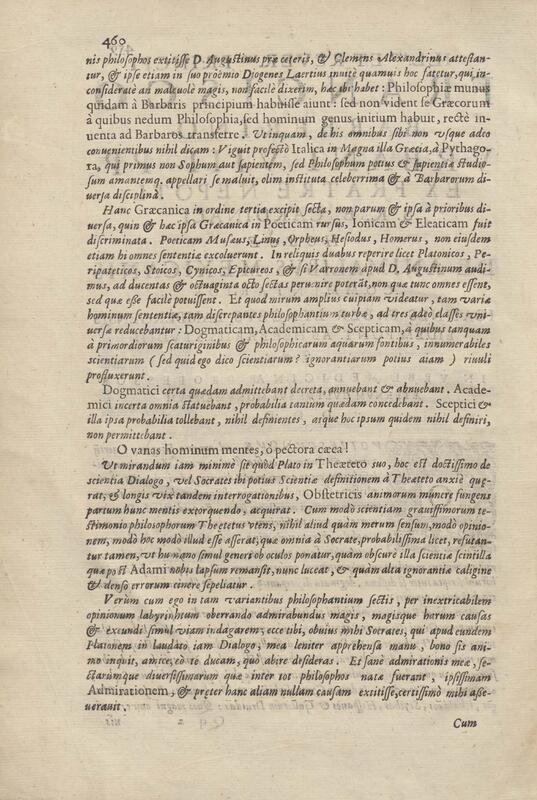 460
nis philosophos extitisse D. Augustinus præ ceteris, & Clemens Alexandrinus attestan-
tur, & ipse etiam in suo proëmio Diogenes Laertius inuitè quamuis hoc fatetur, qui, in-
consideratè an maleuolè magis, non facilè dixerim, hæc ibi habet: Philosophiæ munus
quidam à Barbaris principium habuisse aiunt: sed non vident se Græcorum
à quibus nedum Philosophia, sed hominum genus initium habuit, rectè in-
uenta ad Barbaros transferre. Ut inquam, de his omnibus sibi non vsque adeo
conuenientibus nihil dicam: Viguit profectò Italica in Magna illa Græcia, à Pythago-
ra, qui primus non Sophum aut sapientem, sed Philosophum potius & sapientiæ studio-
sum amantemq. appellari se maluit, olim instituta celeberrima & à Barbarorum di-
uersa disciplina.
Hanc Græcanica in ordine tertia excipit secta, non parum & ipsa à prioribus di-
uersa, quin & hæc ipsa Græcanica in Poeticam rursus, Ionicam & Eleaticam fuit
discriminata. Poeticam Musæus, Linus, Orpheus, Hesiodus, Homerus, non eiusdem
etiam hi omnes sententiæ excoluerunt. In reliquis duabus reperire licet Platonicos, Pe-
ripateticos, Stoicos, Cynicos, Epicureos, & si Varronem apud D. Augustinum audi-
mus, ad ducentas & octuaginta octo sectas peruenire poterāt, non quæ tunc omnes essent,
sed quæ esse facilè potuissent. Et quod mirum amplius cuipiam videatur, tam variæ
hominum sententiæ, tam discrepantes philosophantium turbæ, ad tres adeò classes vni-
uersæ reducebantur: Dogmaticam, Academicam & Scepticam, à quibus tanquam
à primordiorum scaturiginibus & philosophicarum aquarum fontibus, innumerabiles
scientiarum (sed quid ego dico scientiarum? ignorantiarum potius aiam) riuuli
profluxerunt.
Dogmatici certa quædam admittebant decreta, annuebant & abnuebant. Acade-
mici incerta omnia statuebant, probabilia tantum quædam concedebant. Sceptici &
illa ipsa probabilia tollebant, nihil definientes, atque hoc ipsum quidem nihil definiri,
non permittebant.
O vanos hominum mentes, ò pectora cæca!
Ut mirandum iam minimè sit quòd Plato in Theæteto suo, hoc est doctissimo de
scientia Dialogo, vel Socrates ibi potius Scientiæ definitionem à Theæteto anxiè quę-
rat, & longis vix tandem interrogationibus, Obstetricis animorum munere fungens
partum hunc mentis extorquendo, acquirat. Cum modò scientiam grauissimorum te-
stimonio philosophorum Theætetus vtens, nihil aliud quàm merum sensum, modò opinio-
nem, modò hoc modò illud esse asserat, quæ omnia à Socrate, probabilissima licet, refutan-
tur tamen, vt humano simul generi ob oculos ponatur, quàm obscurè illa scientiæ scintilla
quæ post Adami nobis lapsum remansit, nunc luceat, & quàm alta ignorantiæ caligine
& denso errorum cinere sepeliatur.
Verùm cum ego in tam variantibus philosophantium sectis, per inextricabilem
opinionum labyrinthum oberrando admirabundus magis, magisque harum causas
& exeundi simul viam indagarem; ecce tibi, obuius mihi Socrates, qui apud eundem
Platonem in laudato iam Dialogo, mea leniter apprehensa manu, bono sis ani-
mo inquit, amice, eò te ducam, quò abire desideras. Et sanè admirationis meæ, se-
ctarúmque diuersissimarum quæ inter tot philosophos natæ fuerant, ipsissimam
Admirationem, & præter hanc aliam nullam causam extitisse, certissimò mihi asse-
uerauit.
Cum